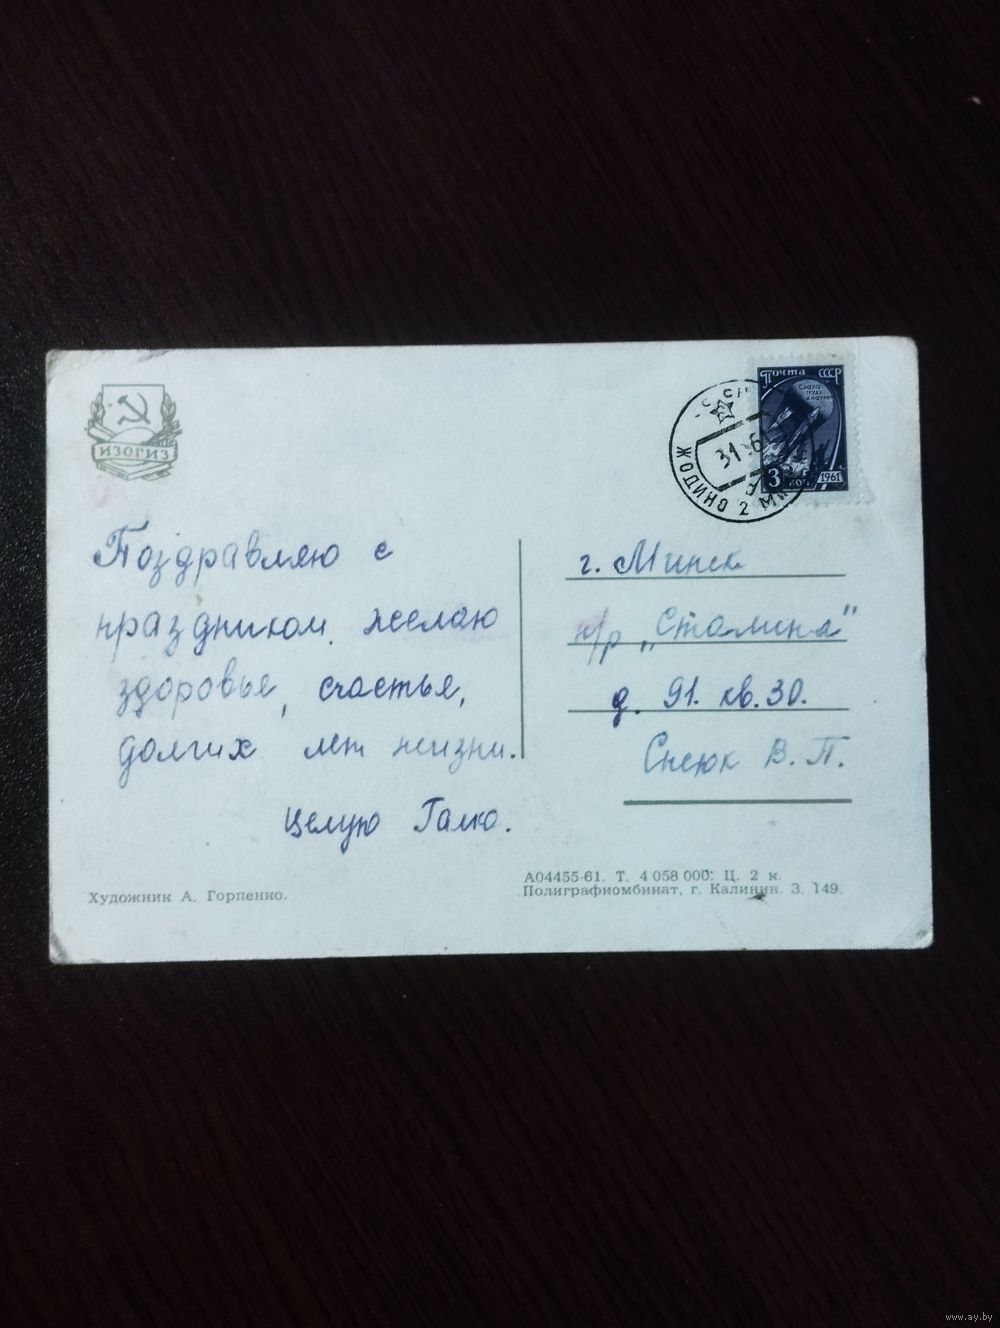 ИЗОГИЗ
Почта СССР
СЛАВА ТРУДУ И НАУКЕ
3 коп 1961
СССР
31 61
ЖОДИНО 2
Поздравляю с
праздником, желаю
здоровье, счастье,
долгих лет жизни.
Целую Галко.
г. Минск
п/р „Сталина"
д. 91. кв. 30.
Снеюк В. П.
Художник А. Горпенко.
А04455-61. Т. 4 058 000. Ц. 2 к.
Полиграфкомбинат, г. Калинин. З. 149.
www.ay.by